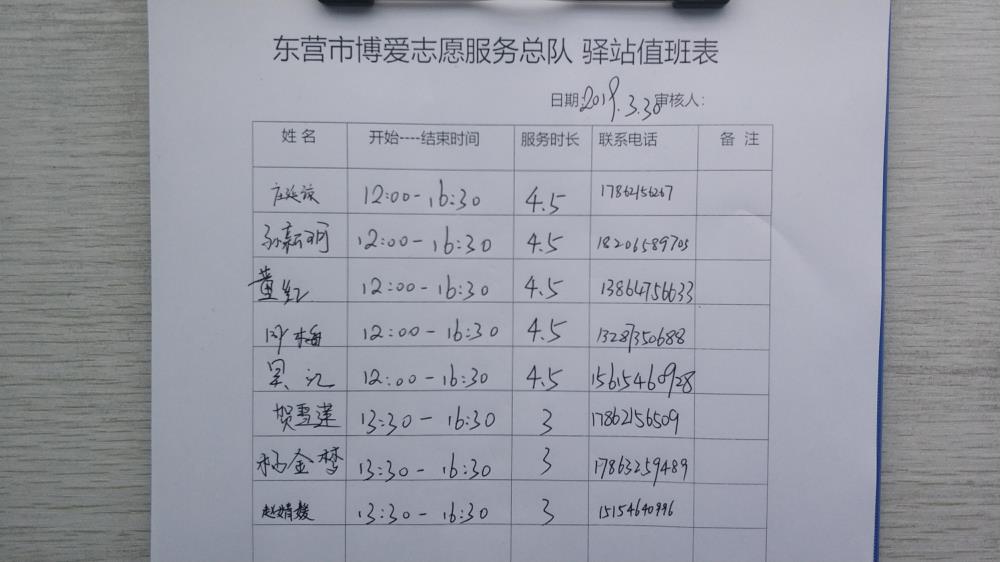 东营市博爱志愿服务总队 驿站值班表
日期:2019.3.30 审核人:
姓名 开始----结束时间 服务时长 联系电话 备 注
12:00-16:30 4.5 17862156267
12:00-16:30 4.5 18206589703
董红 12:00-16:30 4.5 13864756633
梅 12:00-16:30 4.5 13287350688
12:00-16:30 4.5 15615460928
贺雪莲 13:30-16:30 3 17862156509
杨金梦 13:30-16:30 3 17863259489
赵婧媛 13:30-16:30 3 15154640996